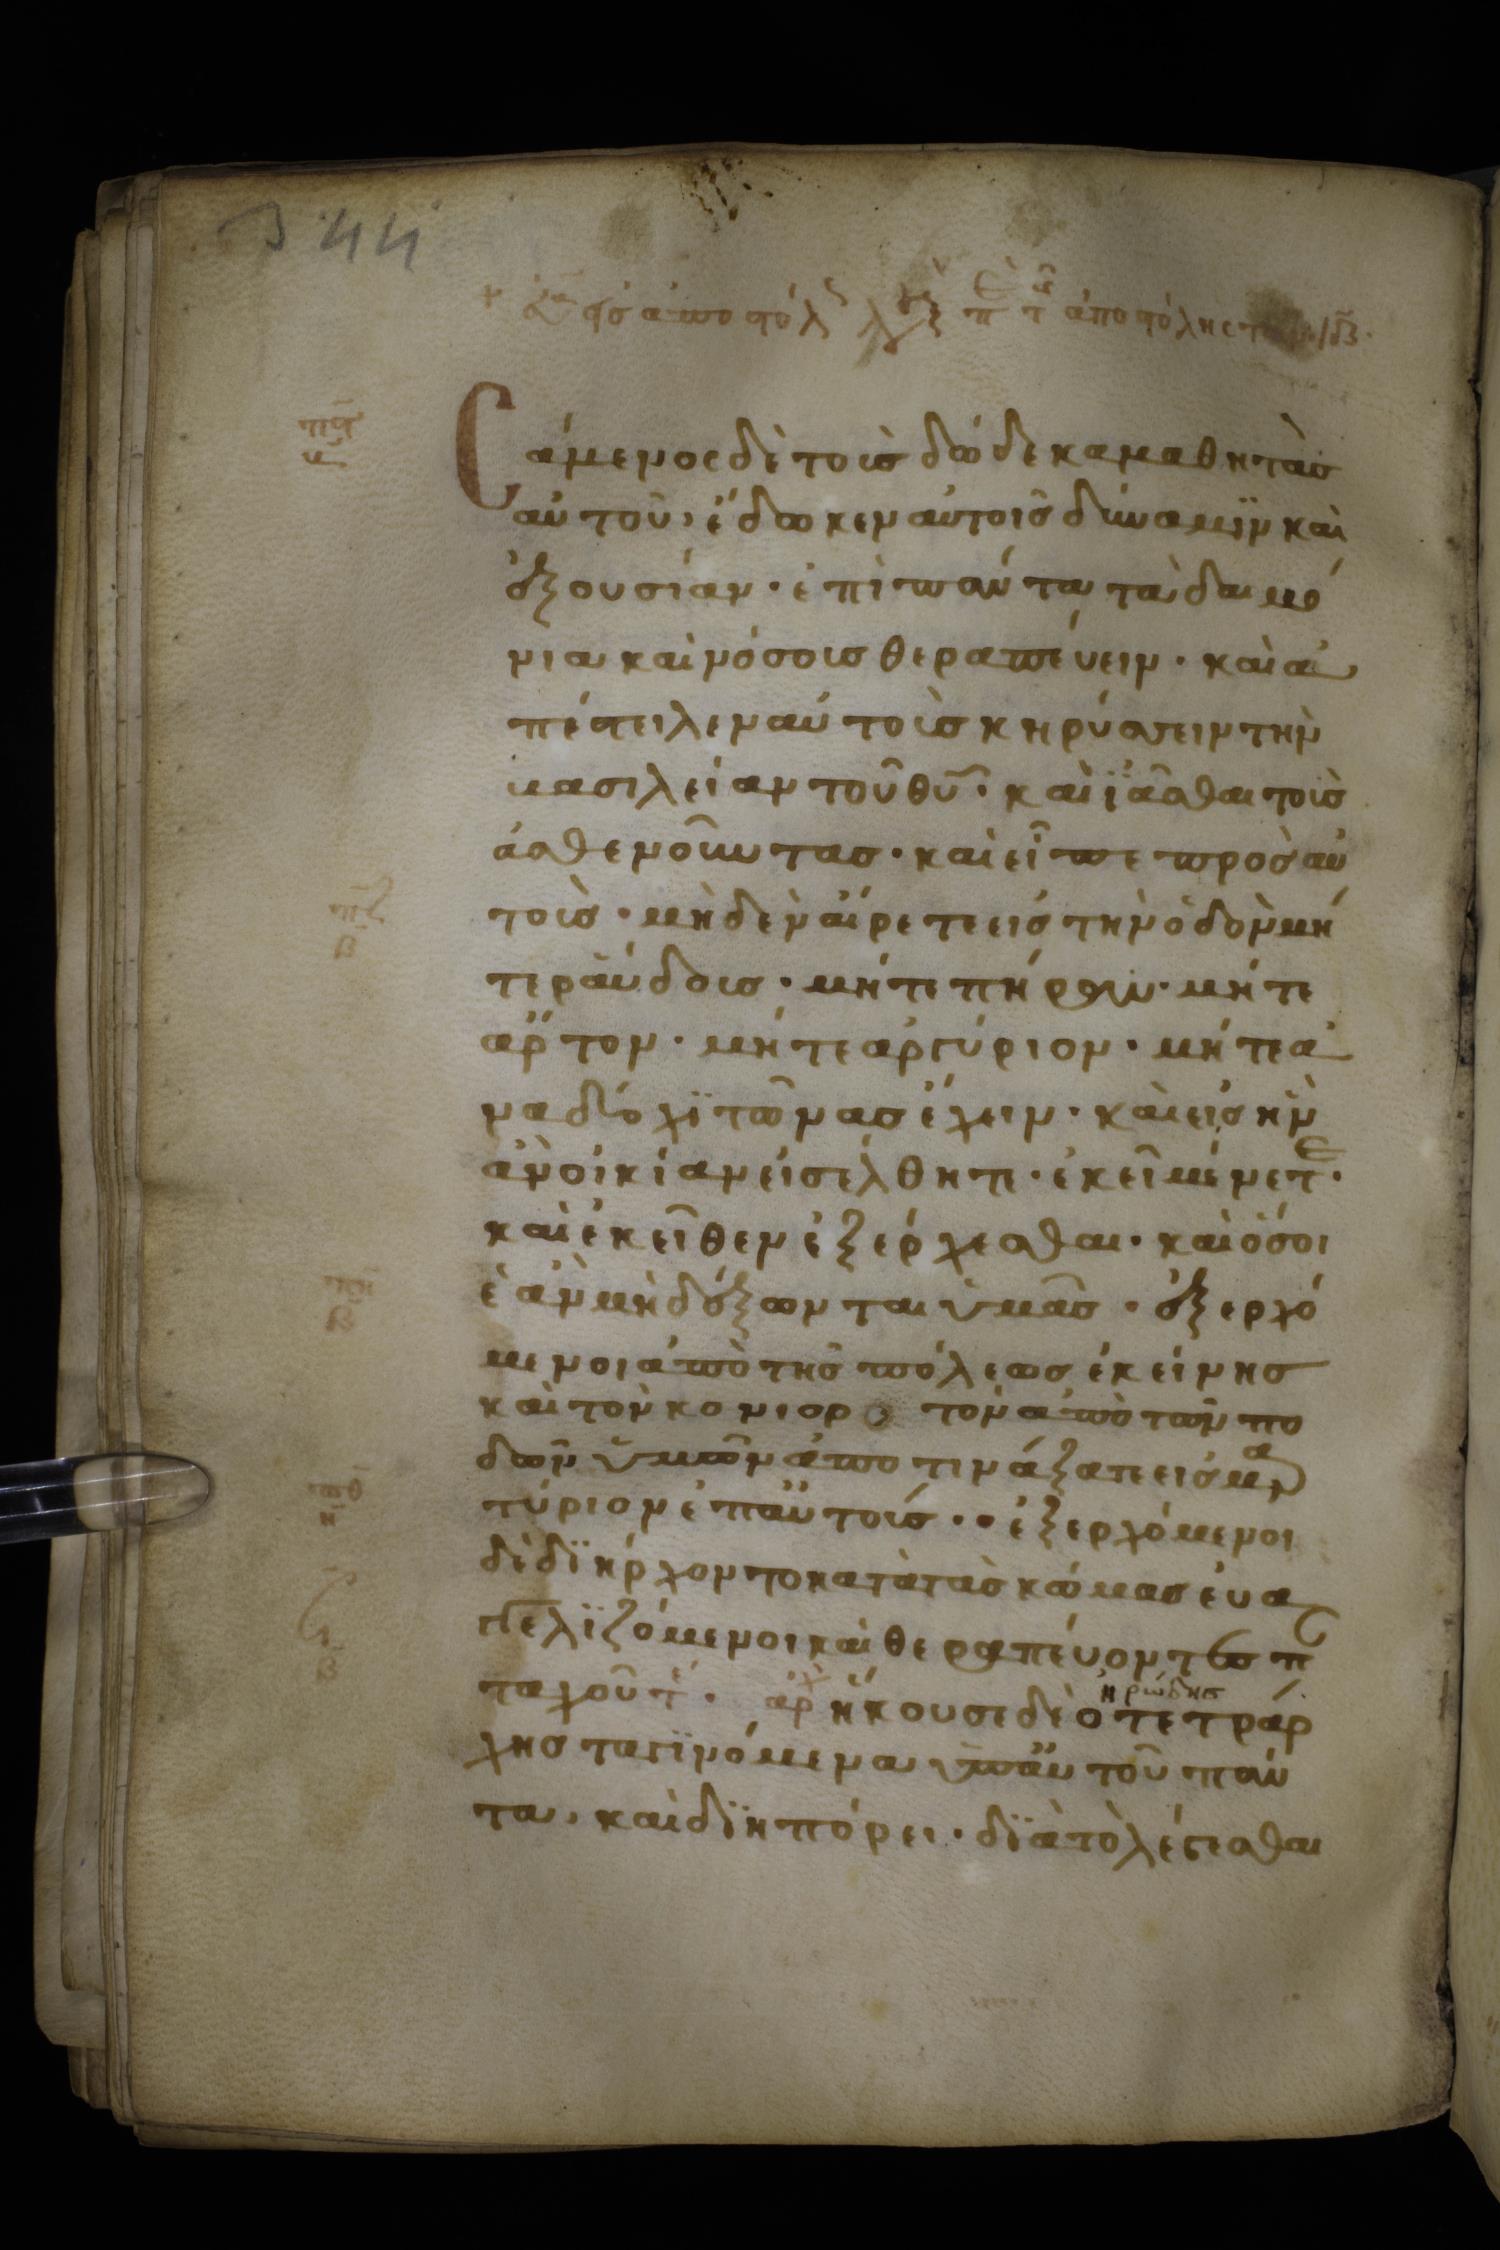 Σ
άμενος δὲ τοὺς δώδεκα μαθητὰς
αὐτοῦ, ἔδωκεν αὐτοῖς δύναμϊν καὶ
ἐξουσίαν · ἐπὶ πάντα τὰ δαιμό
νια καὶ νόσους θεραπεύειν · καὶ ἀ
πέστειλεν αὐτοὺς κηρύσσειν τὴν
βασιλείαν τοῦ θυ · καὶ ϊᾶσθαι τοὺς
ἀσθενοῦντας · καὶ εἶπε πρὸς αὐ
τοὺς · μηδὲν αἴρετε εἰς τὴν ὁδὸν μή
τε ράυδους · μήτε πήραν · μήτε
ἄρτον · μήτε ἀργύριον · μήτε ἀ
να δύο χϊτῶνας ἔχειν · καὶ εἰς ἣν
ἂν οἰκίαν εἰσέλθητε · ἐκεῖ μένετε ·
καὶ ἐκεῖθεν ἐξέρχεσθαι · καὶ ὅσοι
ἐὰν μὴ δέξωνται ὑμᾶς · ἐξερχό
μενοι ἀπὸ τῆς πόλεως ἐκείνης
καὶ τὸν κονιορ τὸν ἀπὸ τῶν πο
δῶν ὑμῶν ἀποτινάξατε εἰς μαρ
τύριον ἐπ αὐτούς · · ἐξερχόμενοι
δὲ δϊήρχοντο κατὰ τὰς κώμας εὐα
γγελϊζόμενοι καὶ θεραπεύοντες π
ταχοῦ τέ · ἀρχ ἤκουσε δὲ ἡρώδης ὁ τετράρ
χης τα γϊνόμενα ὑπ αὐτοῦ πάν
τα, καὶ δϊηπόρει · δϊὰ τὸ λέγεσθαι